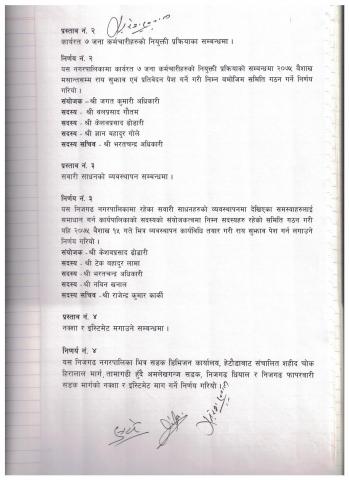 प्रस्ताव नं. २
कार्यरत ७ जना कर्मचारीहरुको नियुक्ती प्रक्रियाका सम्बन्धमा ।
निर्णय नं. २
यस नगरपालिकामा कार्यरत ७ जना कर्मचारीहरुको नियुक्ती प्रक्रियाको सम्बन्धमा २०७५ बैशाख
मसान्तसम्म राय सुझाव एवं प्रतिवेदन पेश गर्ने गरी निम्न बमोजिम समिति गठन गर्ने निर्णय
गरियो ।
संयोजक - श्री जगत कुमारी अधिकारी
सदस्य - श्री बलप्रसाद गौतम
सदस्य - श्री केशवप्रसाद ढोडारी
सदस्य - श्री ज्ञान बहादुर गोले
सदस्य सचिव - श्री भरतचन्द्र अधिकारी
प्रस्ताव नं. ३
सवारी साधनको व्यवस्थापन सम्बन्धमा ।
निर्णय नं. ३
यस निजगढ नगरपालिकामा रहेका सवारी साधनहरुको व्यवस्थापनमा देखिएका समस्याहरुलाई
समाधान गर्न कार्यपालिकाको सदस्यको संयोजकत्वमा निम्न सदस्यहरु रहेको समिति गठन गरी
यहि २०७५ बैशाख १५ गते भित्र व्यवस्थापन कार्यविधि तयार गरी राय सुझाव पेश गर्न लगाउने
निर्णय गरियो ।
संयोजक - श्री केशवप्रसाद ढोडारी
सदस्य - श्री टेक बहादुर लामा
सदस्य - श्री भरतचन्द्र अधिकारी
सदस्य - श्री नविन खनाल
सदस्य सचिव - श्री राजेन्द्र कुमार कार्की
प्रस्ताव नं. ४
नक्शा र इस्टिमेट मगाउने सम्बन्धमा ।
निणर्य नं. ४
यस निजगढ नगरपालिका भित्र सडक डिभिजन कार्यालय, हेटौडाबाट संचालित शहीद चोक
हिरालाल मार्ग, तामागढी हुँदै अमलेखगन्ज सडक, निजगढ थियाल र निजगढ फापरबारी
सडक मार्गको नक्शा र इस्टिमेट माग गर्ने निर्णय गरियो ।